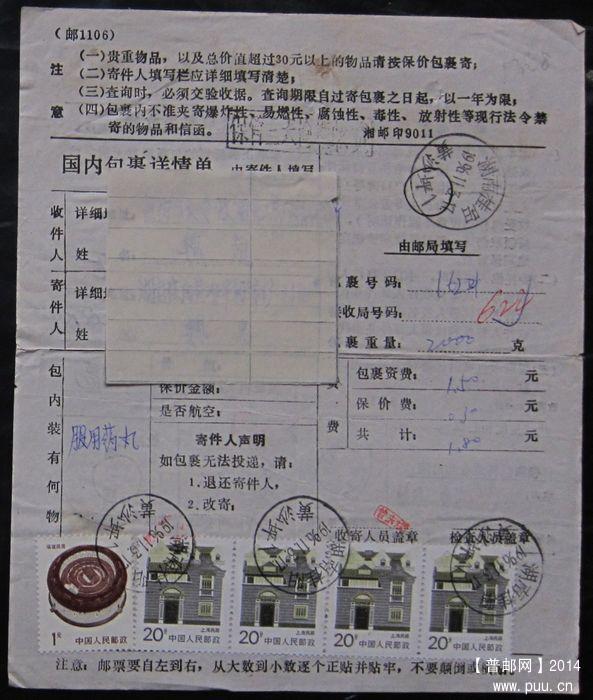 (邮1106)
注意
(一)贵重物品，以及总价值超过30元以上的物品请按保价包裹寄；
(二)寄件人填写栏应详细填写清楚；
(三)查询时，必须交验收据。查询期限自过寄包裹之日起，以一年为限；
(四)包裹内不准夹寄爆炸性、易燃性、腐蚀性、毒性、放射性等现行法令禁
寄的物品和信函。
湘邮印9011
国内包裹详情单
由寄件人填写
湖南桂阳
黄沙坪
收件人
详细地
姓
寄件人
详细
姓
由邮局填写
裹号码：
1624
接收局号码：
624
裹重量：
2000
克
包裹资费：
1.50
元
保价费：
030
元
共计：
1.80
元
费
费
保价金额：
是否航空：
包内装有何物
服用药丸
寄件人声明
如包裹无法投递，请：
1.退还寄件人，
2.改寄：
收寄人员盖章
检查人员盖章
黄沙坪
湖南桂阳
1元
中国人民邮政
20分
上海民居
中国人民邮政
20分
上海民居
中国人民邮政
20分
上海民居
中国人民邮政
20分
上海民居
中国人民邮政
注意：邮票要自左到右，从大数到小数逐个正贴并贴牢，不要颠倒或
【普邮网】2014
www.puu.cn